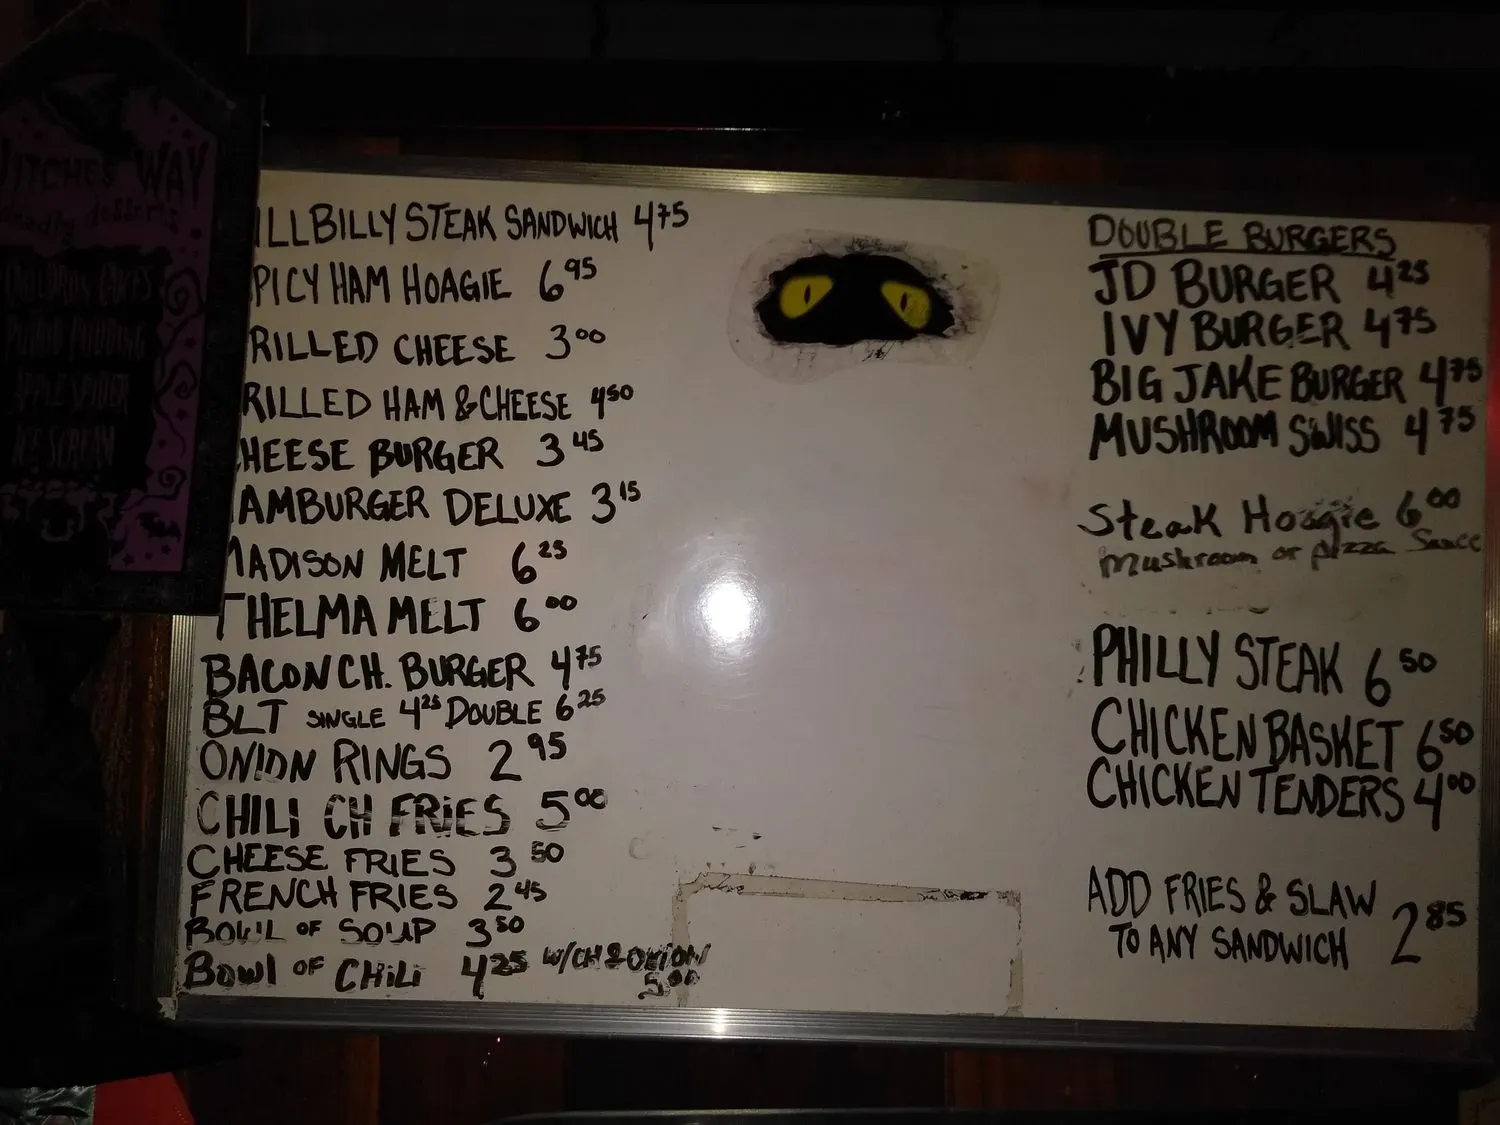 WITCHES WAY
deadly desserts
ILLBILLY STEAK SANDWICH 4 75
PICY HAM HOAGIE 6 95
RILLED CHEESE 3 00
RILLED HAM & CHEESE 4 50
HEESE BURGER 3 45
AMBURGER DELUXE 3 15
MADISON MELT 6 25
THELMA MELT 6 00
BACON CH. BURGER 4 75
BLT SINGLE 4 25 DOUBLE 6 25
ONION RINGS 2 95
CHILI CH FRIES 5 00
CHEESE FRIES 3 50
FRENCH FRIES 2 45
BOWL OF SOUP 3 50
BOWL OF CHILI 4 25 W/CH & ONION
5 00
DOUBLE BURGERS
JD BURGER 4 25
IVY BURGER 4 75
BIG JAKE BURGER 4 75
MUSHROOM SWISS 4 75
Steak Hoagie 6 00
Mushroom or pizza Sauce
PHILLY STEAK 6 50
CHICKEN BASKET 6 50
CHICKEN TENDERS 4 00
ADD FRIES & SLAW
TO ANY SANDWICH 2 85